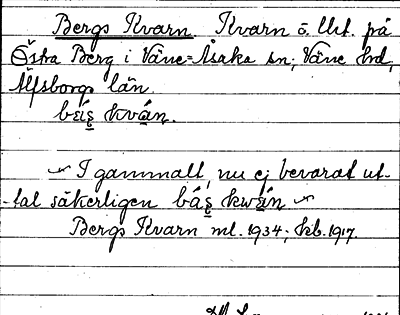 Bergs Kvarn. Kvarn ö. Ut. på
Östra Berg i Väne-Åsaka sn; Väne hrd,
Älfsborgs län.
kván.
I gammalt, nu ej bevarat ut-
-tal säkerligen kwán
Bergs Kvarn ml. 1934; kb. 1917.